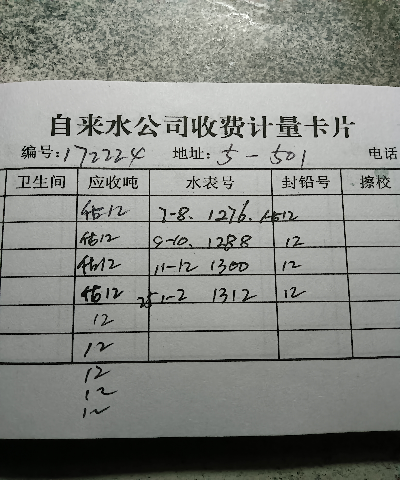 自来水公司收费计量卡片
编号:172224 地址:5-501 电话
卫生间 应收吨 水表号 封铅号 擦校
估12 7-8. 1276. 估12
估12 9-10. 1288 12
估12 11-12 1300 12
估12 25 1-2 1312 12
12
12
12
12
12